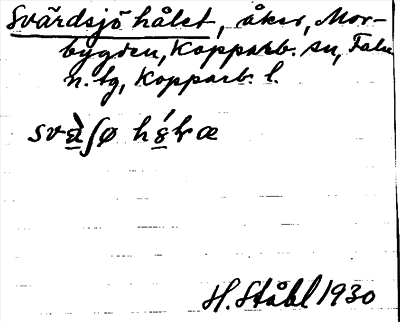 Svärdsjö hålet, åker, Mor-
bygden, Kopparb. sn, Falu
n. tg, Kopparb. l.
svὰʃø hɛ́ɫæ
H. Ståhl 1930